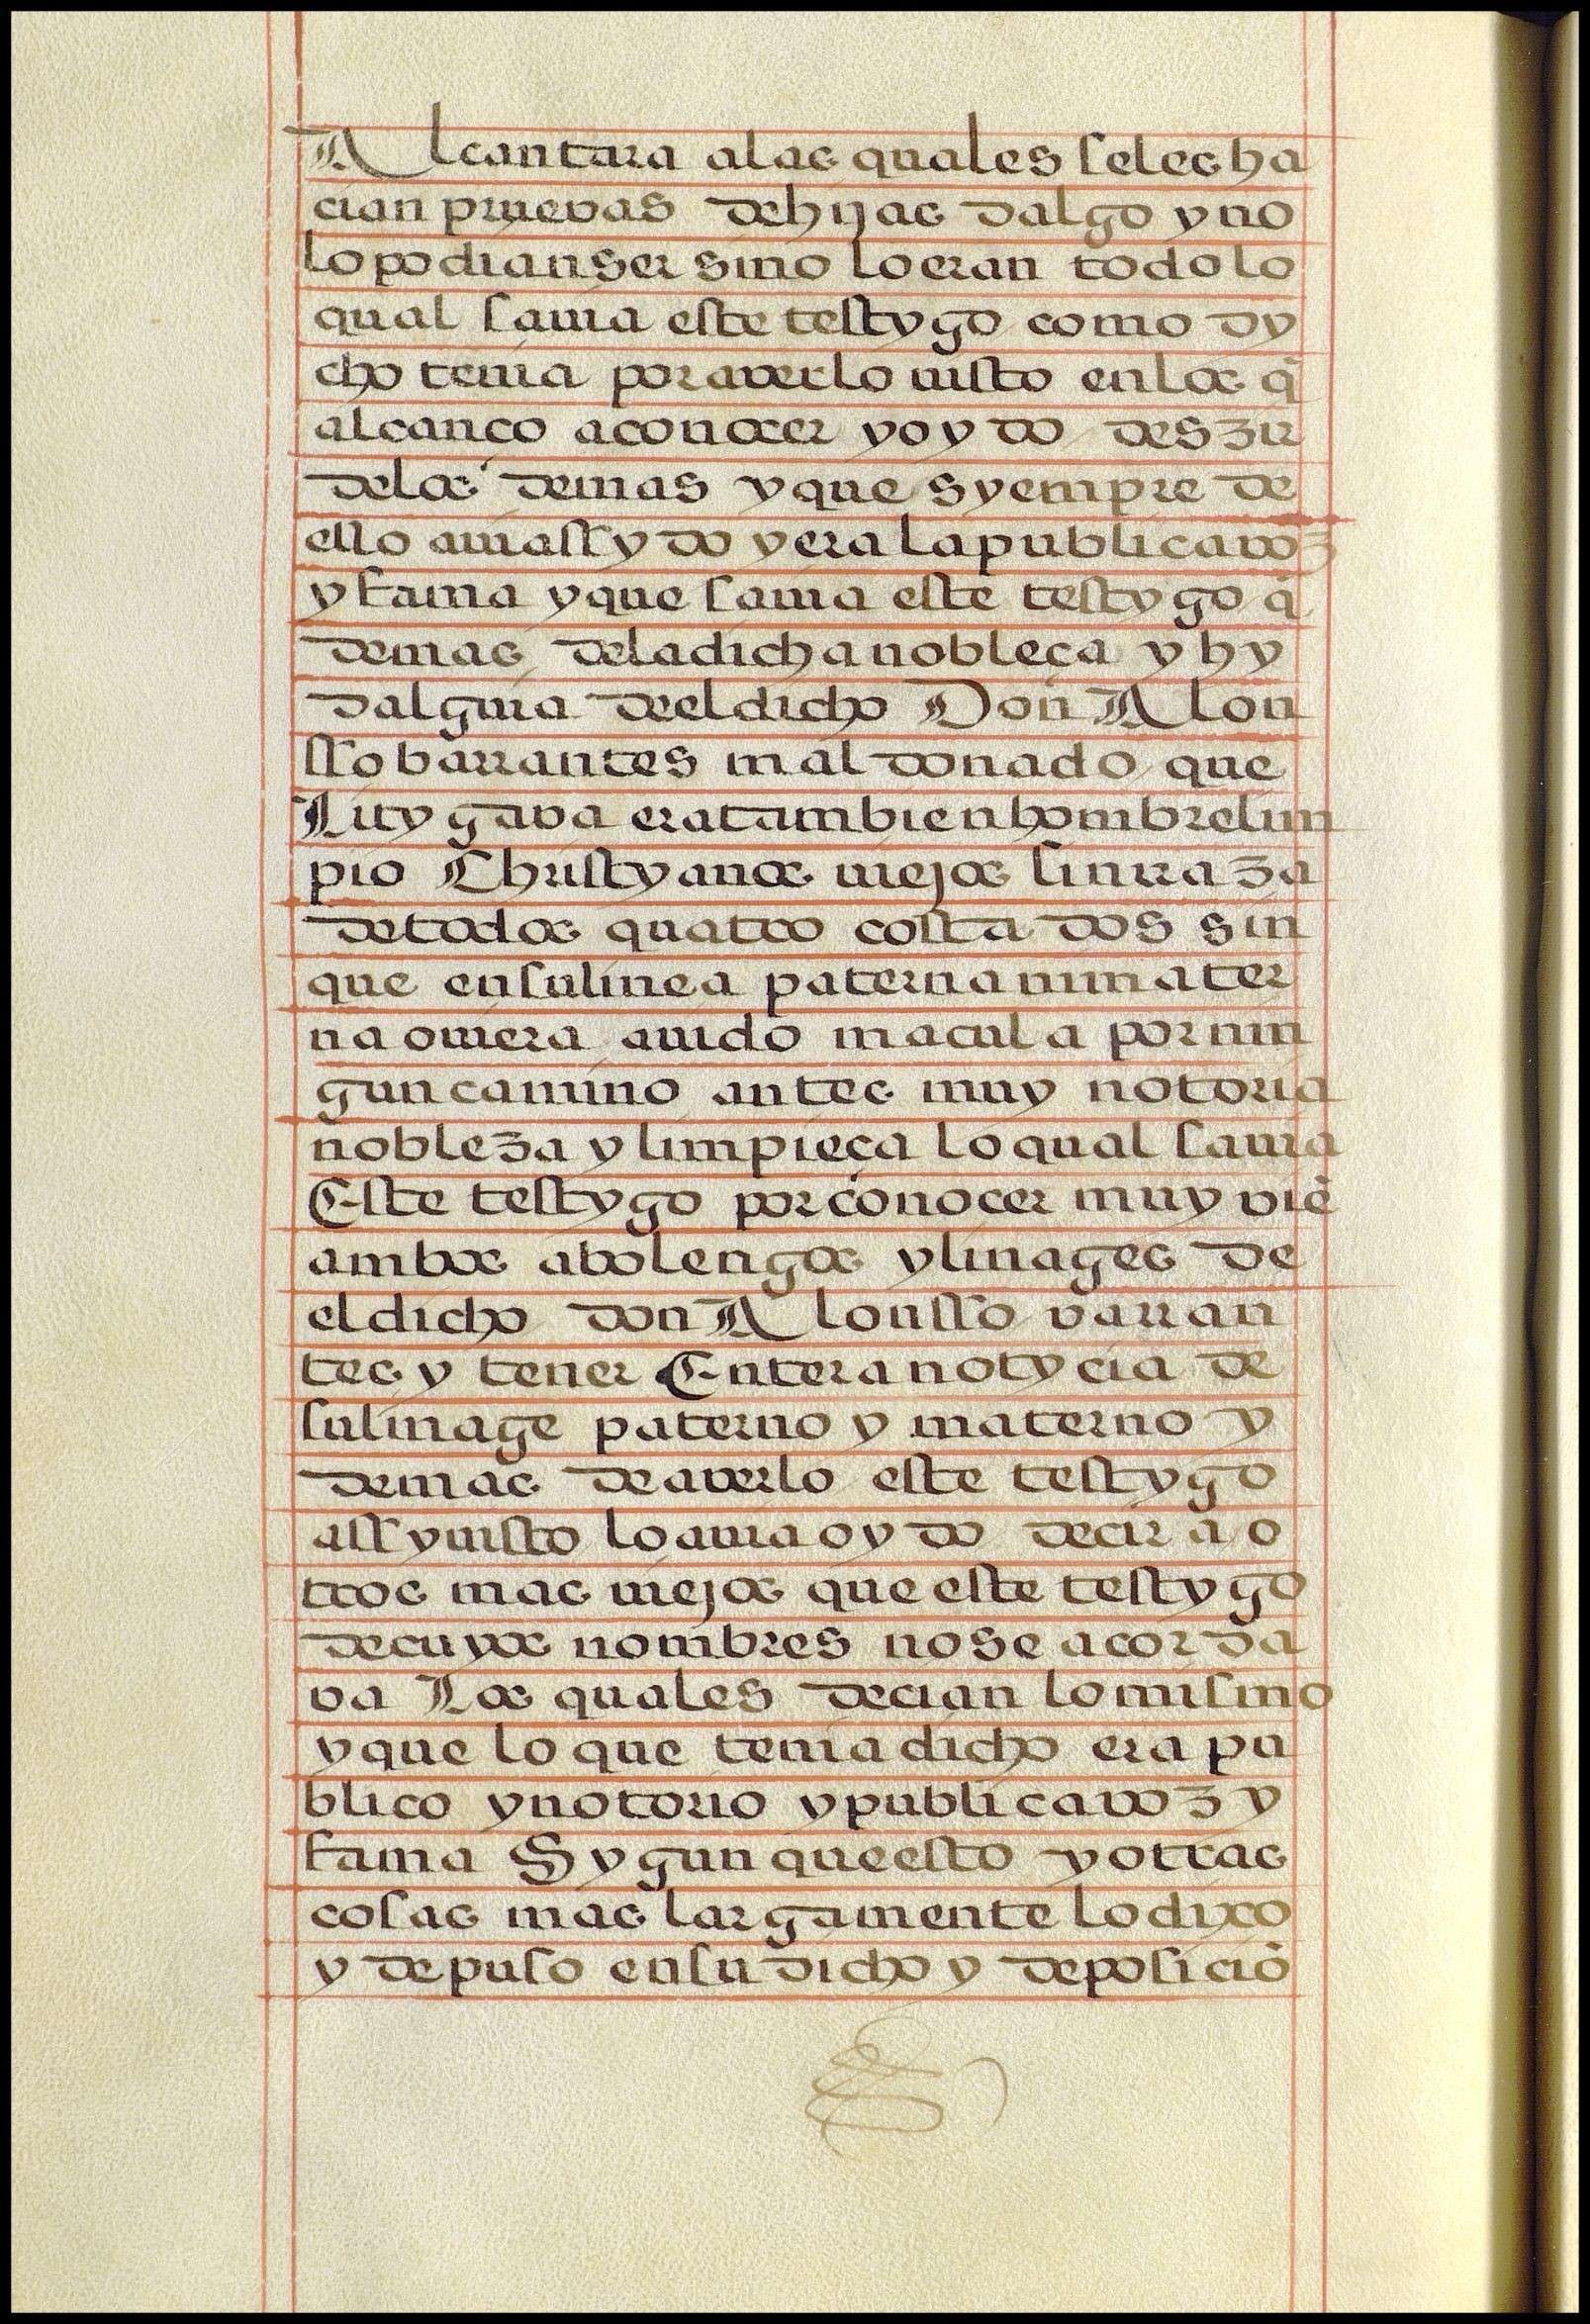 Alcantara alas quales seles ha
cian pruevas dehijas dalgo y no
lo podian ser sino lo eran todo lo
qual savia este testygo como dy
cho tenia por averlo visto en los q̄
alcanço a conocer y oydo deszir
delos demas y que syempre de
ello avia ssydo y era la publica voz
y fama y que savia este testygo q̄
demas dela dicha nobleça y hy
dalguia de el dicho Don Alon
sso barrantes maldonado que
Litygava era tambien hombre lim
pio Christyanos viejos sin rraza
de todos quatro costados sin
que en su linea paterna ni mater
na oviera avido macula por nin
gun camino antes muy notoria
nobleza y limpieça lo qual savia
Este testygo por conocer muy viē
ambos abolengos y linages de
el dicho don Alonsso varran
tes y tener Entera notycia de
su linage paterno y materno y
demas de averlo este testygo
assy visto lo avia oydo decir a o
tros mas viejos que este testygo
de cuyos nombres no se acorda
va Los quales decian lo mismo
y que lo que tenia dicho era pu
blico y notorio y publica voz y
fama Sygun que esto y otras
cosas mas largamente lo dixo
y depuso en su dicho y deposiciō